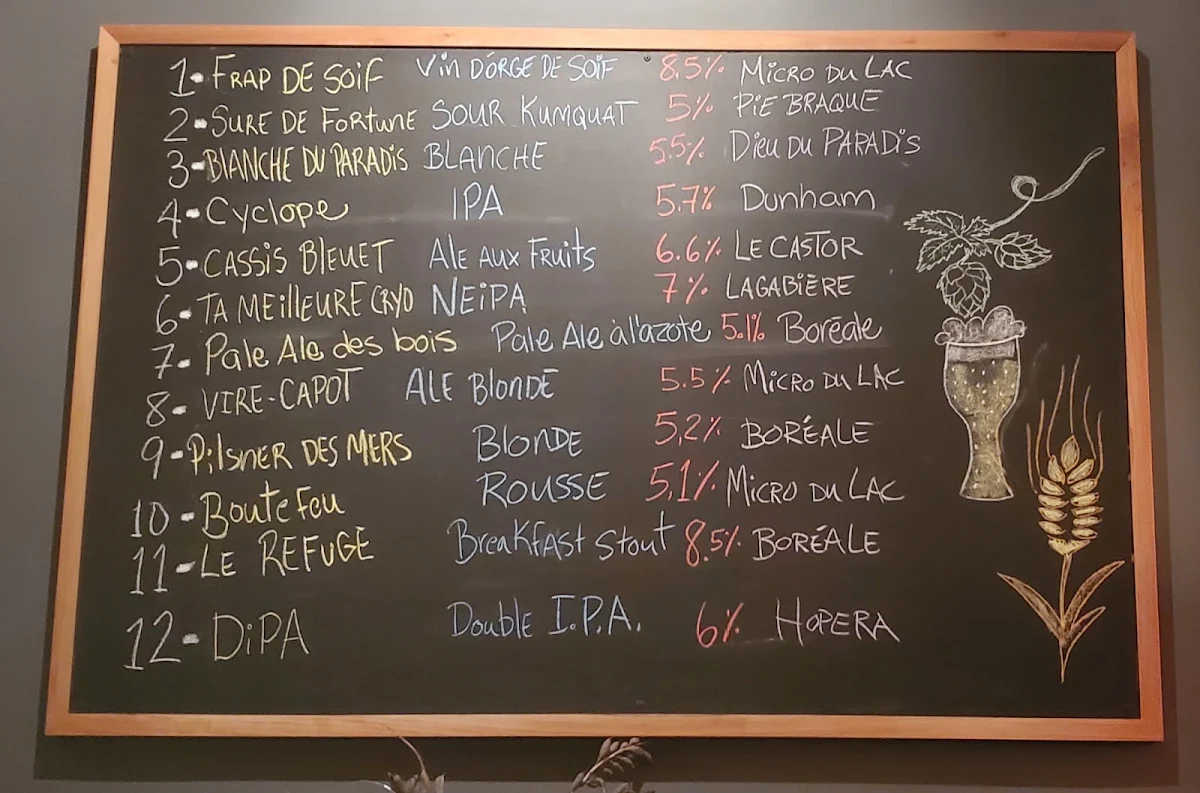 1- FRAP DE SOiF Vin D'ORGE DE SOiF 8.5% MiCRO DU LAC
2- SURE DE FORTUNE SOUR KUMQUAT 5% PiE BRAQUE
3- BLANCHE DU PARADiS BLANCHE 5.5% DiEU DU PARADiS
4- Cyclope IPA 5.7% Dunham
5- CASSiS BLEUET ALE AUX FRUiTS 6.6% LE CASTOR
6- TA MEiLLEURE CRYO NEiPA 7% LAGABiÈRE
7- Pale Ale des bois Pale Ale à l'azote 5.1% Boréale
8- ViRE-CAPOT ALE BLONDE 5.5% MiCRO DU LAC
9- PiLSNER DES MERS BLONDE 5,2% BORÉALE
10- BOUTEFEU ROUSSE 5,1% MiCRO DU LAC
11- LE REFUGE BREAKFAST STOUT 8.5% BORÉALE
12- DiPA DOUBLE I.P.A. 6% HOPERA